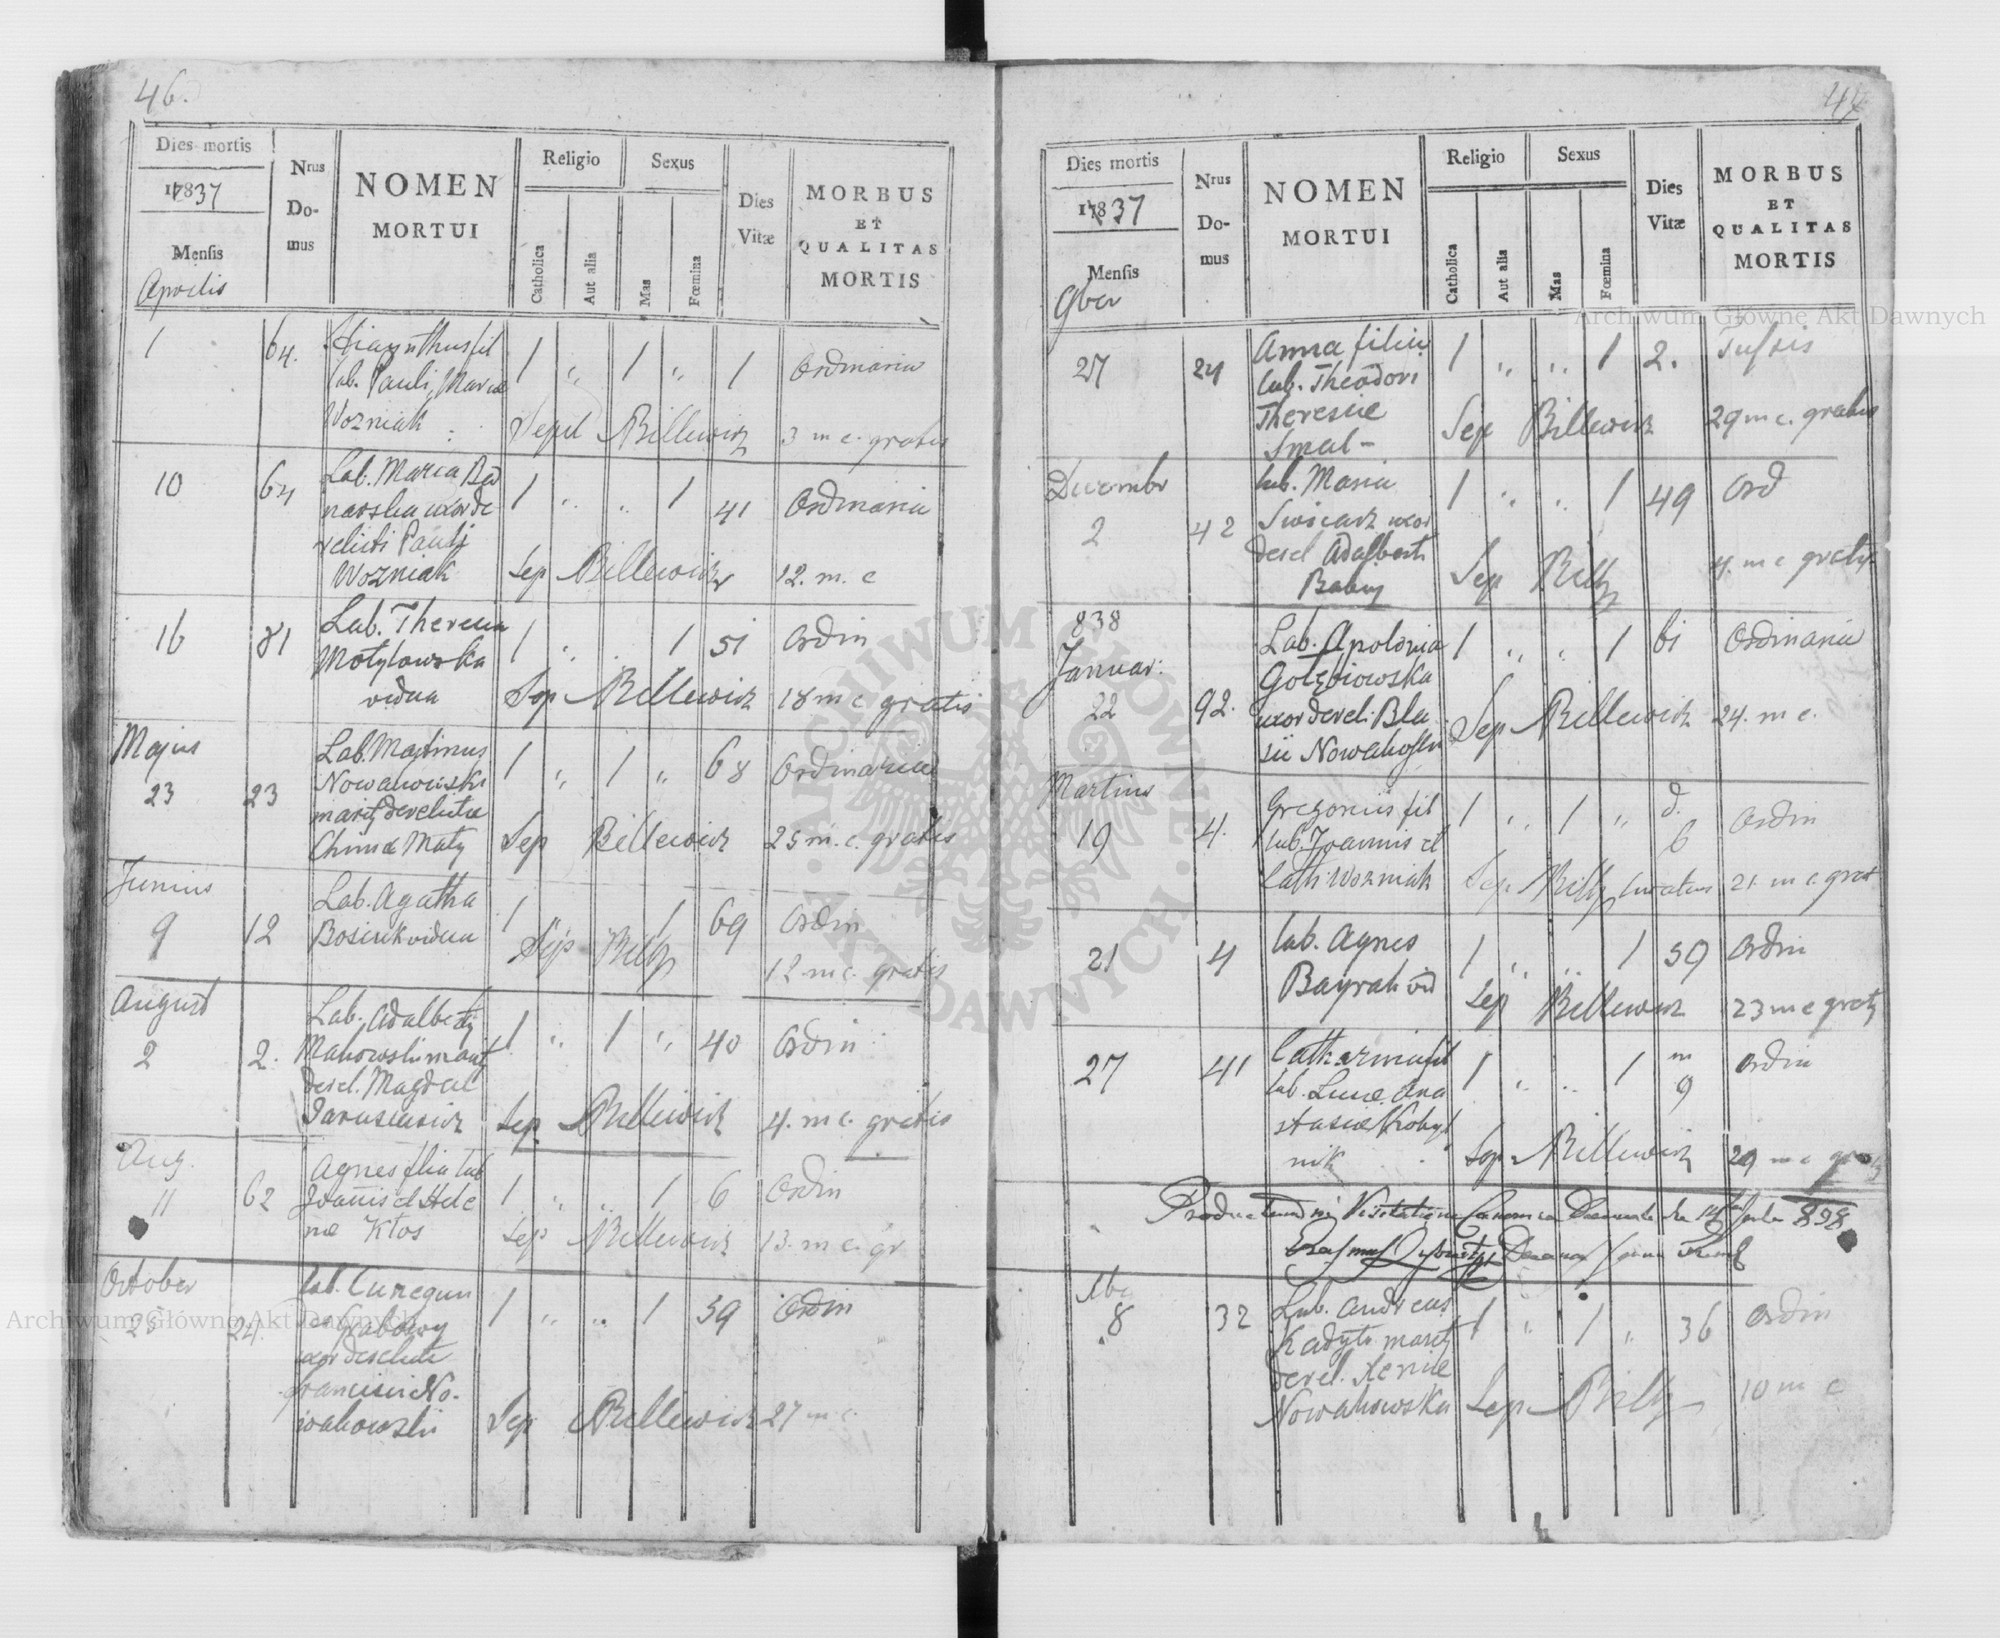 46.
Dies mortis
17837
Mensis
Aprilis
Nrus
Do-
mus
NOMEN
MORTUI
Religio
Catholica
Aut alia
Sexus
Mas
Fœmina
Dies
Vitæ
MORBUS
ET
QUALITAS
MORTIS
1 64. Hiacynthus fil 1 " 1 " 1 Ordinaria
lab. Pauli, Mariae
Wozniak Sepel Billewicz 3 m c. gratis
10 64 Lab. Maria Bed 1 " " 1 41 Ordinaria
narska uxor de
relicti Pauli
Wozniak Sep Billewicz 12. m. c
16 81 Lab. Theresia 1 " " 1 51 Ordin
Motylowska
vidua Sep Billewicz 18 m c gratis
Majus
23 23 Lab. Martinus 1 " 1 " 68 Ordinaria
Nowakowski
marit derelictae
Maty Sep Billewicz 25 m. c. gratis
Junius
9 12 Lab. Agatha 1 1 69 Ordin
vidua Sep Billz 12 m c. gratis
August
2 2. Lab. Adalbertg 1 " 1 " 40 Ordin
Makowski marit
derel. Magdal
Sep. Billewicz 4. m c. gratis
Aug.
11 62 Agnes filia lab 1 " " 1 6 Ordin
Joannis et Hele
nae Kłos Sep Billewicz 13. m c. gr
October
25 24. Lab. Cunegun 1 " " 1 59 Ordin
uxor derelicti
Francisci No-
wakowski Sep Billewicz 27 m c.
47
Dies mortis
17837
Mensis
9ber
Nrus
Do-
mus
NOMEN
MORTUI
Religio
Catholica
Aut alia
Sexus
Mas
Fœmina
Dies
Vitæ
MORBUS
ET
QUALITAS
MORTIS
27 24 Anna filia 1 " " 1 2. Tussis
lab. Theodori
Theresiae
Smal- Sep Billewicz 29 m c. gratis
Decembr
2 42 lab. Maria 1 " " 1 49 Ord
uxor
derel Adalberti
Sep Billz 4. m c gratis
838
Januar:
22 92. Lab. Apolonia 1 " " 1 61 Ordinaria
Gołębiowska
uxor derel: Bla
sii Nowakoski Sep Billewicz 24. m c.
Martius
19 4. Gregorius fil 1 " 1 " d. 6 Ordin
lab. Joannis et
Cath: Wozniak Sep. Billz Curatus 21. m c. grat
21 4 lab. Agnes 1 " " 1 59 Ordin
Bayrak vid Sep Billewicz 23 m c gratis
27 41 Catharina fil 1 " " 1 m 9 Ordin
lab. Lucae Ana
stasiae Kobyl
nik Sep. Billewicz 29 m c gratis
Productum in Visitatione Canonica 838
8 32 Lab. Andreas 1 " 1 " 36 Ordin
marit
derel. Xeniae
Nowakowska Sep. Billz 10 m c
Archiwum Główne Akt Dawnych
Archiwum Główne Akt Dawnych
ARCHIWUM GŁÓWNE · AKT DAWNYCH ·